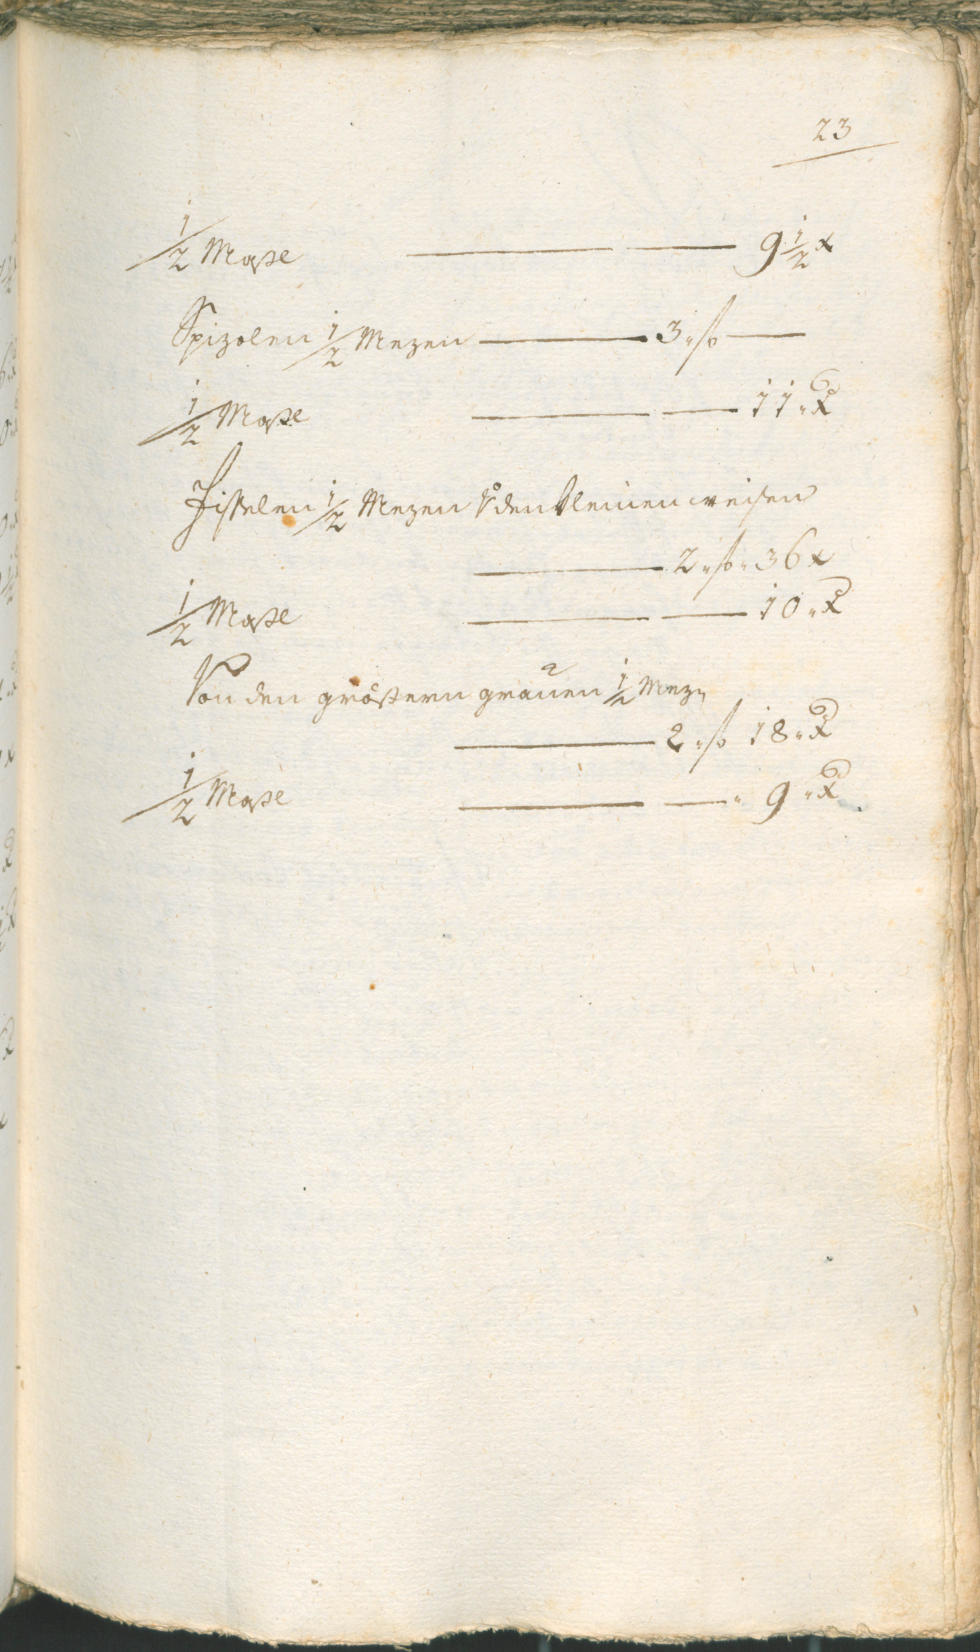 23
1/2 Maße — — 9 1/2 x
Spizolen 1/2 Mezen — 3 „ fl —
1/2 Maße — — 11 „ x
Fisselen 1/2 Mezen v den kleinen weisen
— 2 „ fl „ 36 x
1/2 Maße — — 10 „ x
Von den größern grauen 1/2 Mez
— 2 „ fl 18 „ x
1/2 Maße — — „ 9 „ x